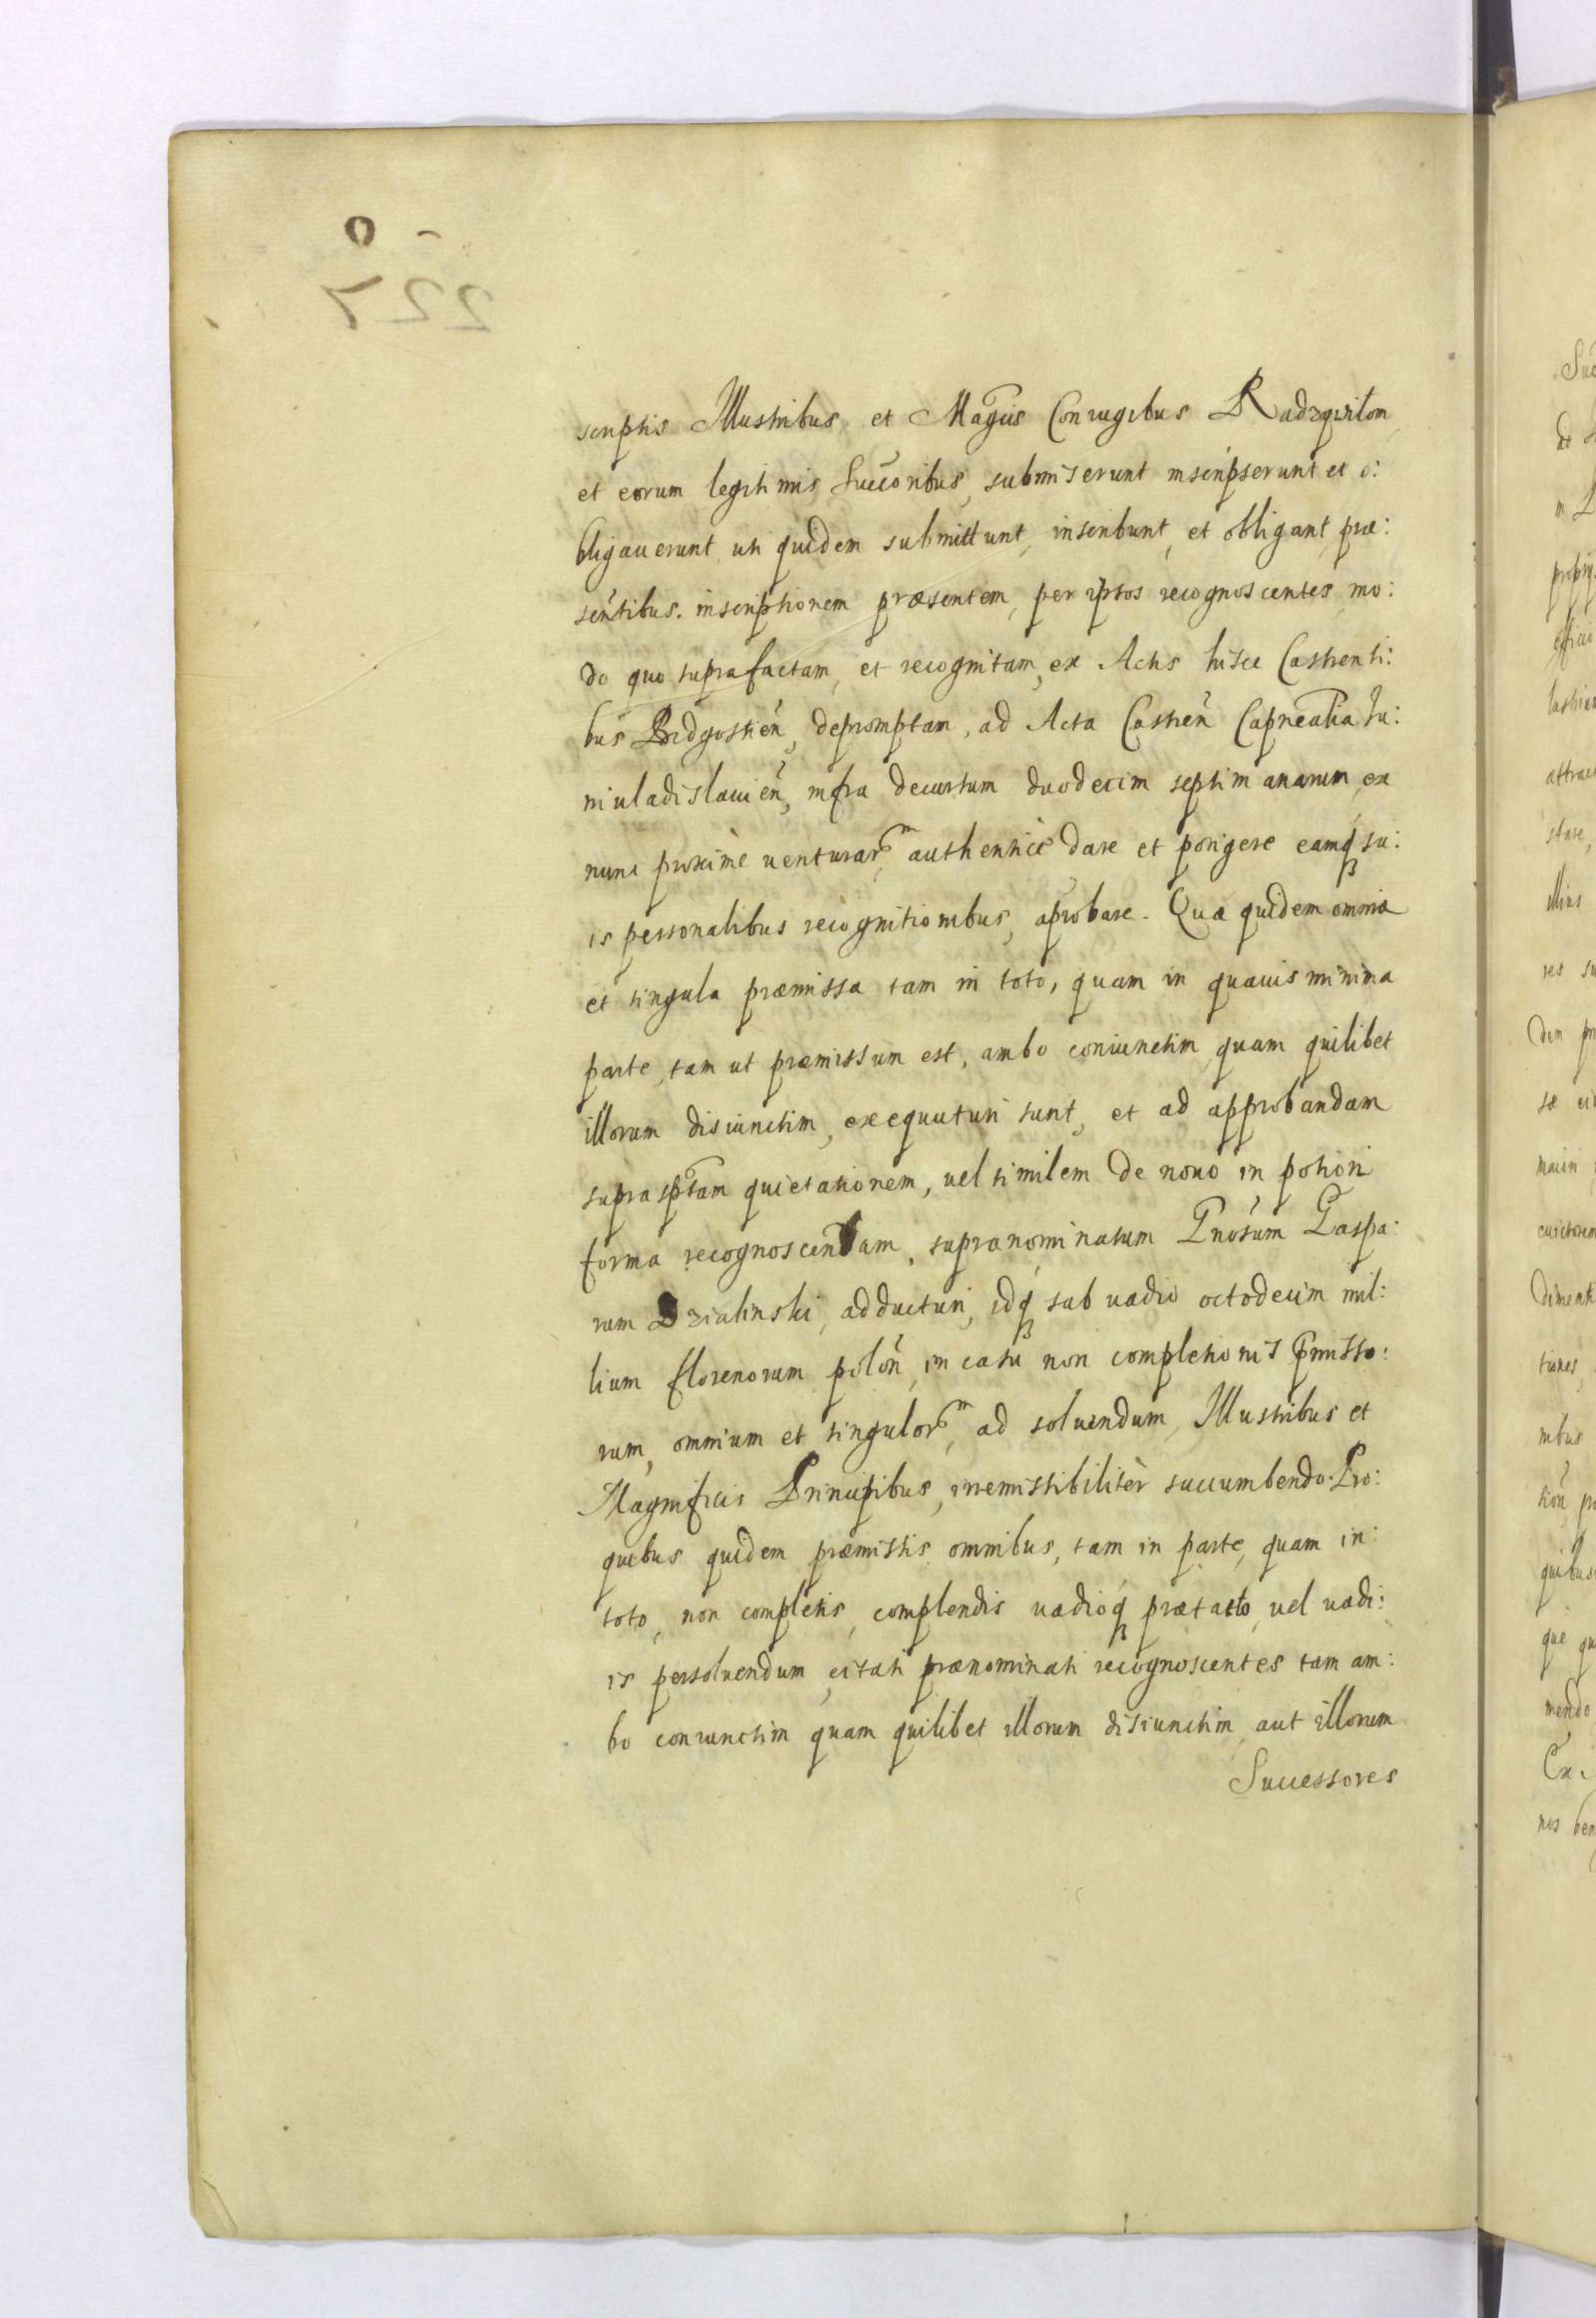 scriptis Illustribus et Magcis Coniugibus Radzywilom
et eorum legitimis Succoribus, submiserunt inscripserunt et o:
bligauerunt uti quidem submittunt, inscribunt, et obligant, præ:
sentibus. inscriptionem præsentem, per ipsos recognoscentes, mo:
do quo suprafactam, et recognitam, ex Actis huisce Castrensi:
bus Bidgostien, depromptam, ad Acta Castren Capnealia Iu:
niuladislauien, infra decursum duodecim septimanarum, ex
nunc proximè venturarm, authenticè dare et porigere eamq su:
is personalibus recognitionibus, aprobare. Quæ quidem omnia
et singula præmissa tam in toto, quam in quauis minima
parte, tam ut præmissum est, ambo coniunctim, quam quilibet
illorum disiunctim, exequuturi sunt, et ad approbandam
suprasptam quietationem, uel similem de nouo in potiori
forma recognoscendam, supranominatum Gnosum Gaspa:
rum Dzialinski, adducturi, idq sub uadio octodecim mil:
lium florenorum polon, in casu non completionis Pmisso:
rum, omnium et singulorm, ad soluendum, Illustribus et
Magnificis Principibus, irremissibilitèr succumbendo. Pro:
quibus quidem præmissis omnibus, tam in parte, quam in:
toto, non completis, complendis uadioq prætacto, uel uadi:
is persoluendum, citati prænominati recognoscentes tam am:
bo coniunctim quam quilibet illorum disiunctim aut illorum
Successores